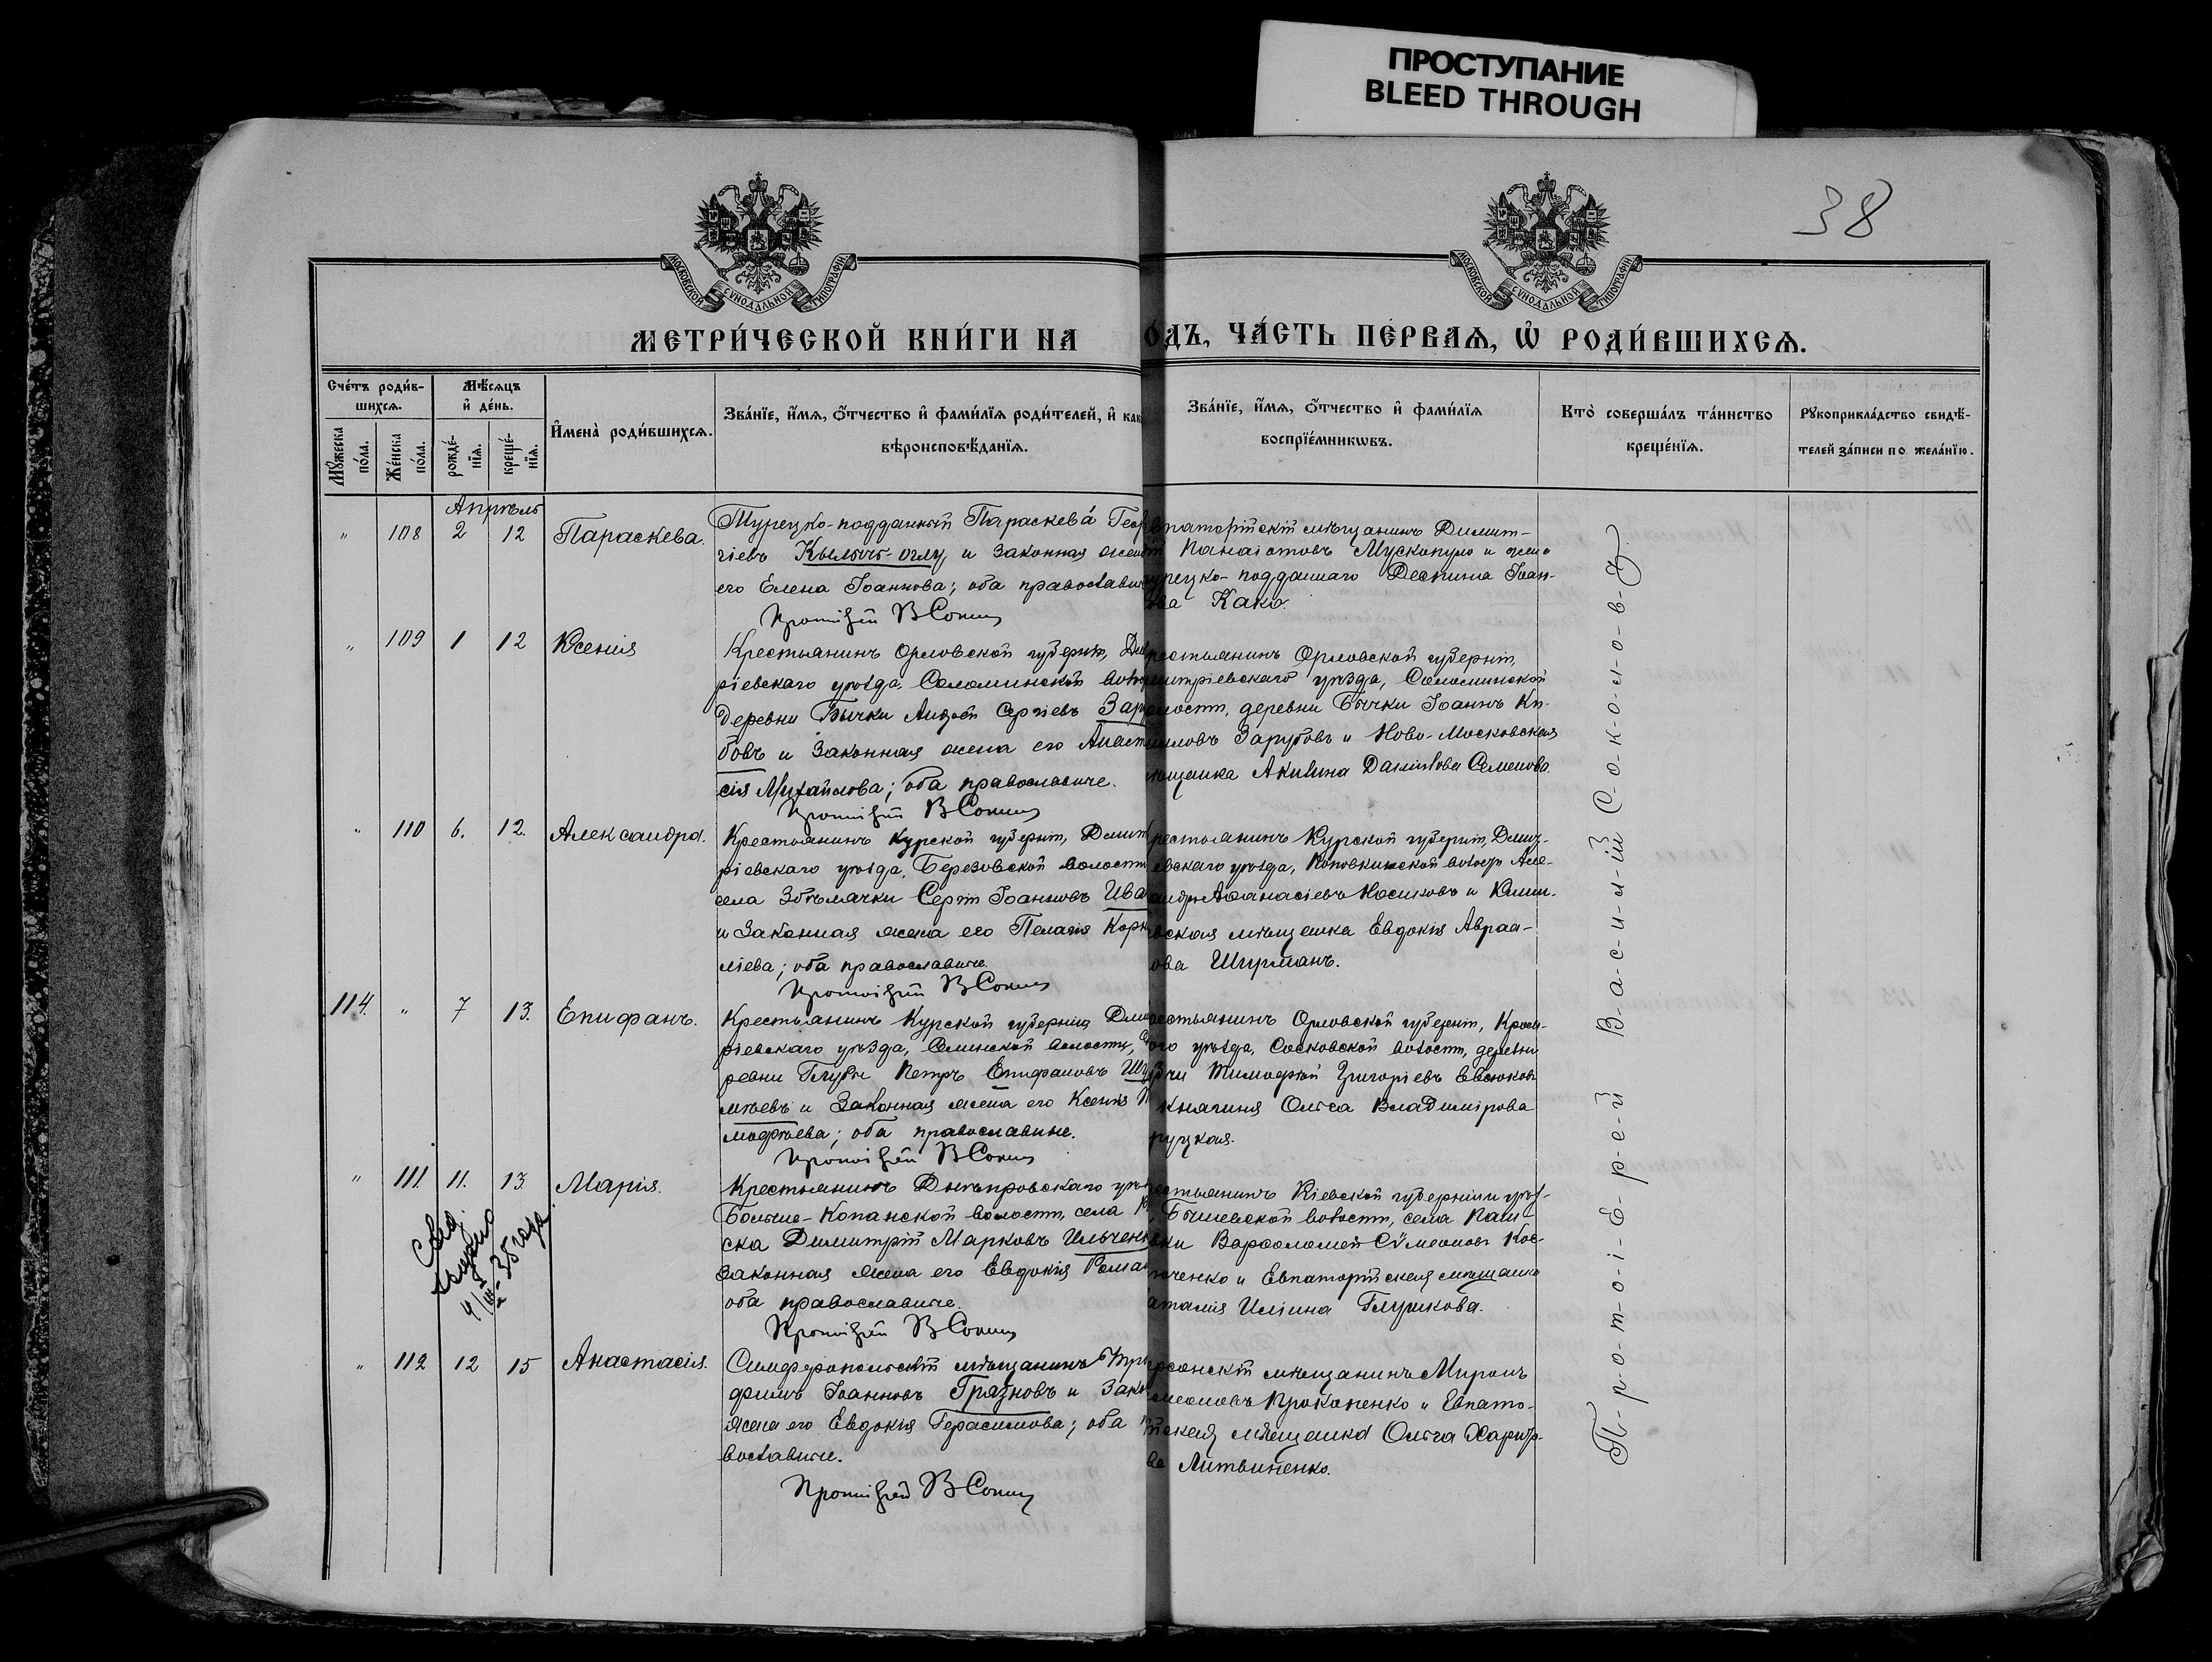 ПРОСТУПАНИЕ
BLEED THROUGH
38
МОСКОВСКОЙ СѴНОДАЛЬНОЙ ТИПОГРАФІИ
МОСКОВСКОЙ СѴНОДАЛЬНОЙ ТИПОГРАФІИ
МЕТРИ́ЧЕСКОЙ КНИ́ГИ НА
О́ДЪ, ЧА́СТЬ ПЕ́РВАѦ, Ѡ҆ РОДИ́ВШИХСѦ.
Сче́тъ роди́в-
шихсѧ.
Мꙋ́жеска по́ла.
Же́нска по́ла.
Мѣ́сѧцъ
и҆ де́нь.
рожде́-
нїѧ.
креще́-
нїѧ.
И҆мена̀ роди́вшихсѧ.
Зва́нїе, и҆́мѧ, ѻ҆́тчество и҆ фами́лїѧ роди́телей, и҆ как
вѣроисповѣ́данїѧ.
Зва́нїе, и҆́мѧ, ѻ҆́тчество и҆ фами́лїѧ
воспрїе́мникѡвъ.
Кто̀ соверша́лъ та́инство
креще́нїѧ.
Рꙋкоприкла́дство свидѣ́-
телей за́писи по жела́нїю.
Апрѣль
" 108 2 12 Параскева.
Турецко-подданный Параскева́ Геор
гіевъ Кылычъ-оглу и законная жен
его Елена Іоаннова; оба православн
Протоіерей В Сокол
впаторійскій мѣщанинъ Димит-
Панаіотовъ Мускопуло и жена
урецко-подданнаго Деспина Іоан-
ова Како.
" 109 1 12 Ксенія
Крестьянинъ Орловской губерніи, Дми
ріевскаго уѣзда, Соломинской воло
деревни Бычки Андрей Сергіевъ Зару
бовъ и законная жена его Анаст
сія Михайлова; оба православные.
Протоіерей В Сокол
рестьянинъ Орловской губерніи,
митріевскаго уѣзда, Соломинской
олости, деревни Бычки Іоаннъ Ки-
илловъ Зарубовъ и Ново-Московская
ѣщанка Акилина Даніилова Семенова.
" 110 6. 12. Александра.
Крестьянинъ Курской губерніи, Димит
ріевскаго уѣзда, Березовской волости
села Сергій Іоанновъ Ива
и законная жена его Пелагія Корн
ліева; оба православные.
Протоіерей В Сокол
рестьянинъ Курской губерніи, Дмит-
евскаго уѣзда, волости Але-
андръ Аѳанасіевъ Носиковъ и
вская мѣщанка Евдокія Авраа-
ова Ширманъ.
114. " 7 13. Епифанъ.
Крестьянинъ Курской губерніи Дми
ріевскаго уѣзда, волости, д
ревни Петръ Епифановъ Ш
мѣевъ и законная жена его Ксенія
моѳеева; оба православные.
Протоіерей В Сокол
рестьянинъ Орловской губерніи, Кром-
ого уѣзда, Сосковской волости, деревни
Тимоѳей Григоріевъ Евсюковъ
княгиня Ольга Владимірова
руцкая.
" 111. 11. 13. Марія.
Крестьянинъ Днѣпровскаго уѣ
Больше-Копанской волости, села
ска Димитрій Марковъ Ильчен
законная жена его Евдокія Рома
оба православные.
Протоіерей В Сокол
рестьянинъ Кіевской губерніи и уѣз-
, Бышевской волости, села Паш-
вки Варѳоломей Сѵмеоновъ Кос-
юченко и Евпаторійская мѣщанка
аталія Иліина Глушкова.
35 года
" 112 12 15 Анастасія.
Симферопольскій мѣщанинъ Три
фонъ Іоанновъ Грязновъ и зако
жена его Евдокія Герасимова; оба п
вославные.
Протоіерей В Сокол
ерсонскій мѣщанинъ Миронъ
меоновъ Прокопенко и Евпато-
ійская мѣщанка Ольга Харито-
ва Литвиненко.
П-р-о-т-о-і-Е-р-е-й В-а-с-и-л-ій С-о-к-о-л-о-в-ъ